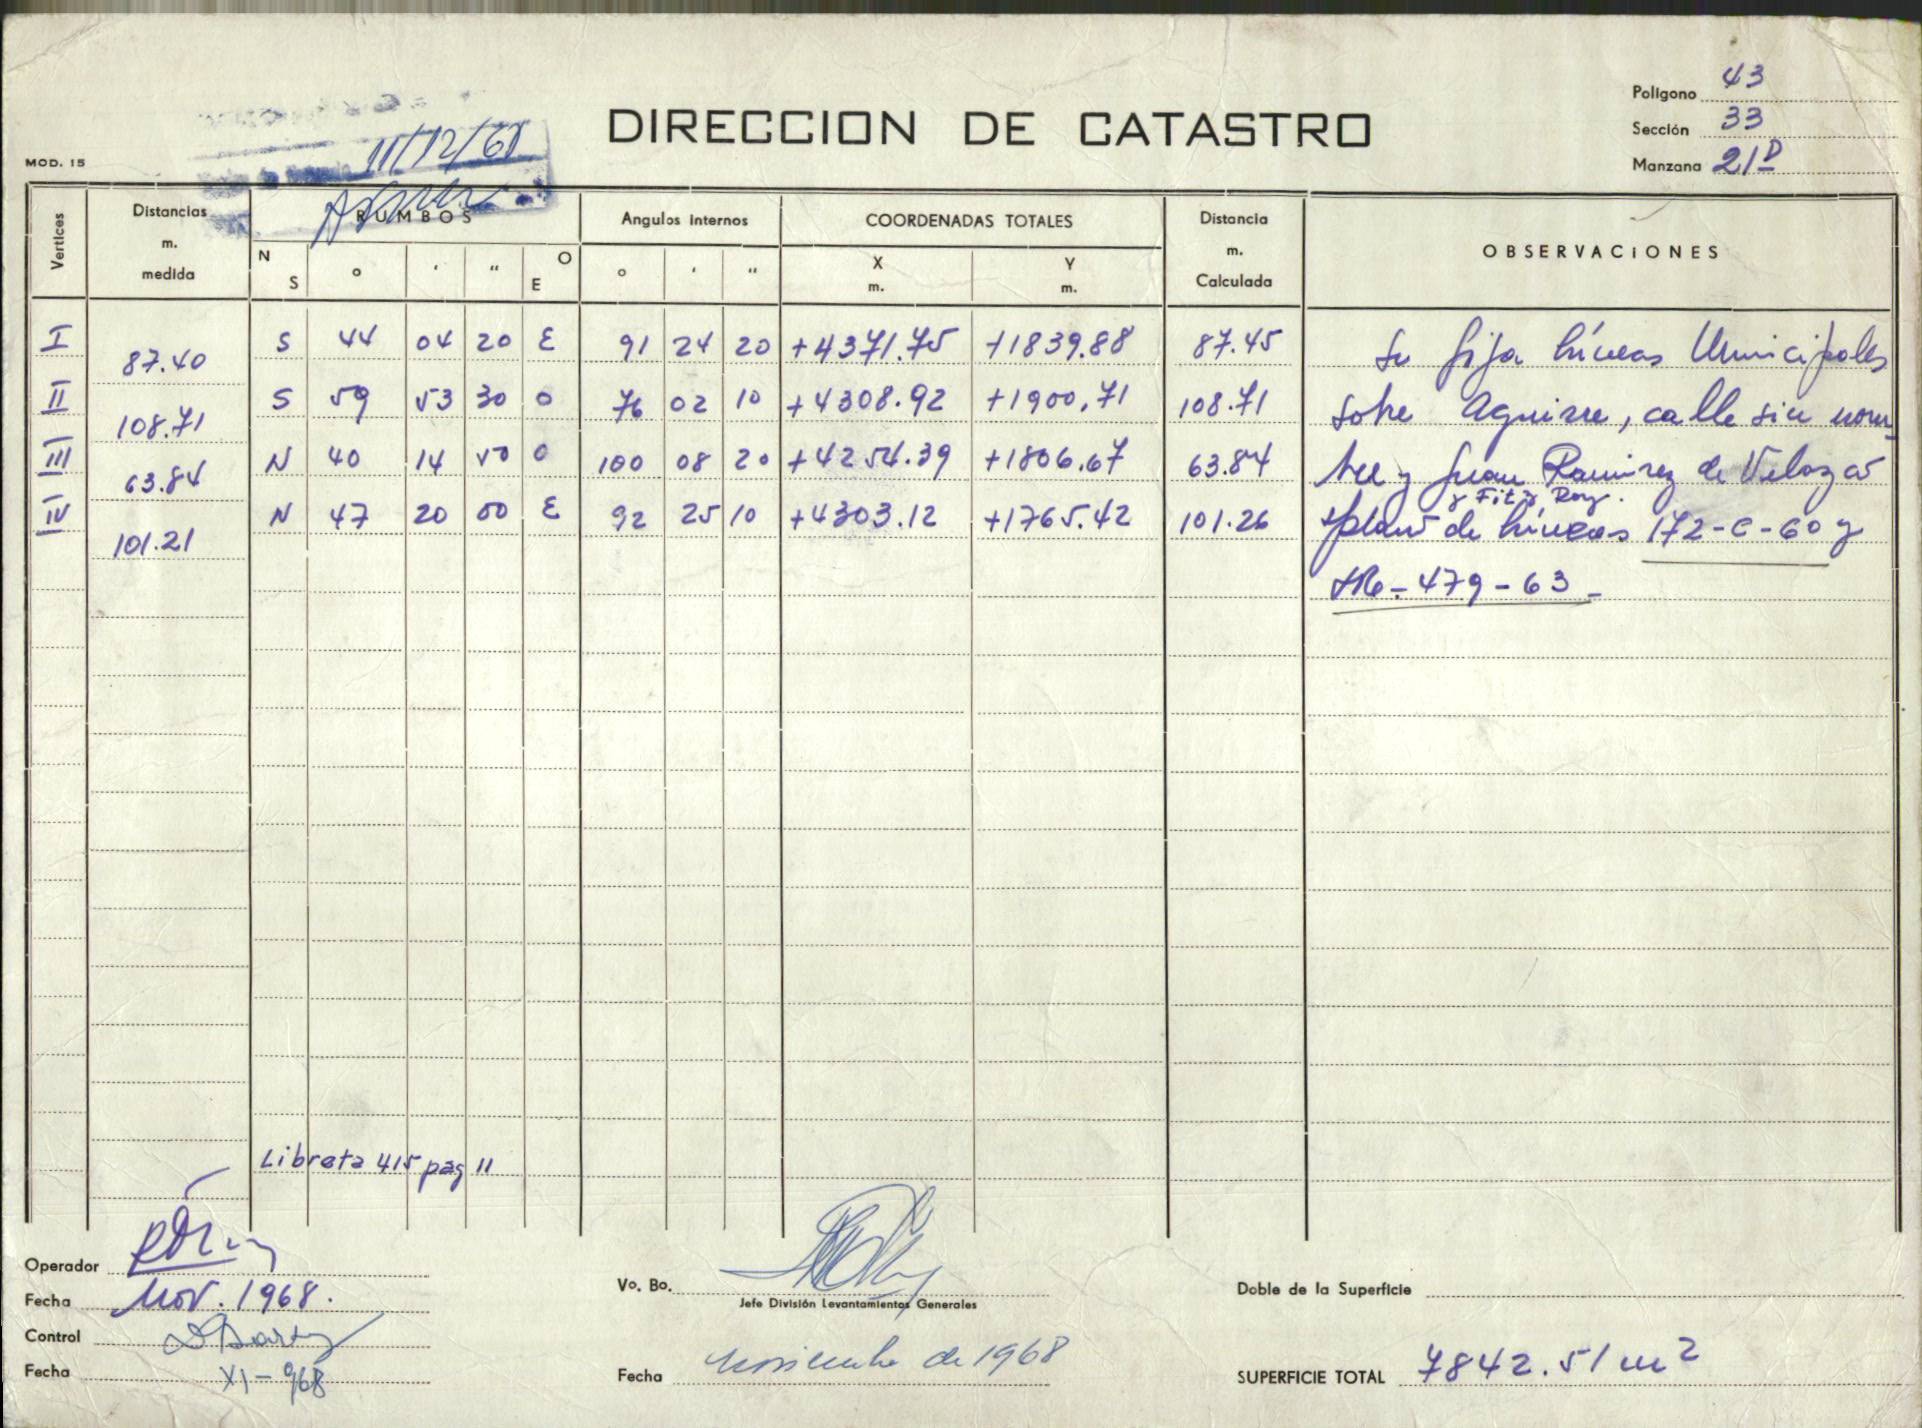 DIRECCION DE CATASTRO
Polígono 43
Sección 33
Manzana 21D
MOD. 15
11/12/68
Vertices
Distancias m. medida
RUMBOS
Angulos internos
COORDENADAS TOTALES
Distancia m. Calculada
OBSERVACIONES
N S ° ' " O E
° ' "
X m. Y m.
I 87.40 S 44 04 20 E 91 24 20 +4371.75 +1839.88 87.45
II 108.71 S 59 53 30 O 76 02 10 +4308.92 +1900,71 108.71
III 63.84 N 40 14 50 O 100 08 20 +4254.39 +1806.67 63.84
IV 101.21 N 47 20 00 E 92 25 10 +4303.12 +1765.42 101.26
Se fija líneas Municipales
sobre Aguirre, calle sin nom-
bre y Juan Ramirez de Velazco
y Fitz Roy.
plano de líneas 172-C-60 y
-479-63-
Libreta 415 pag 11
Operador
Fecha Nov. 1968.
Control
Fecha XI-968
Vo. Bo.
Jefe División Levantamientos Generales
Fecha noviembre de 1968
Doble de la Superficie
SUPERFICIE TOTAL 7842.51 m2